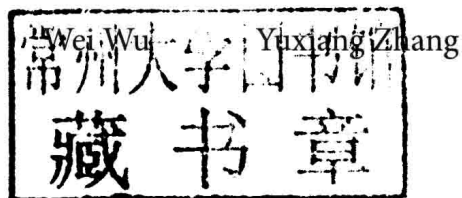 Wei Wu Yuxiang Zhang
常州大学图书馆
藏书章